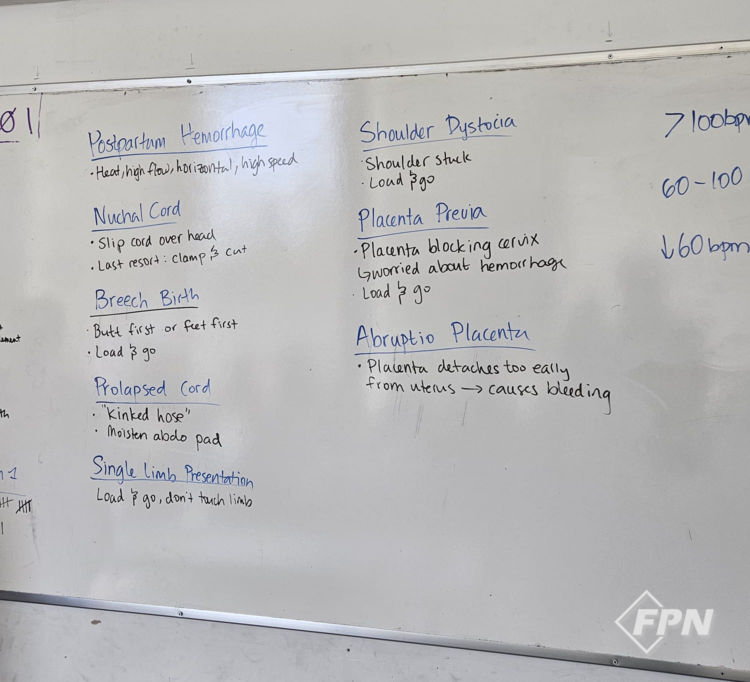 01
Postpartum Hemorrhage
• Heat, high flow, horizontal, high speed
Nuchal Cord
• Slip cord over head
• Last resort: clamp & cut
Breech Birth
• Butt first or feet first
• Load & go
Prolapsed Cord
• "Kinked hose"
• Moisten abdo pad
Single Limb Presentation
Load & go, don't touch limb
Shoulder Dystocia
• Shoulder stuck
• Load & go
Placenta Previa
• Placenta blocking cervix
↳ worried about hemorrhage
• Load & go
Abruptio Placenta
• Placenta detaches too early
from uterus → causes bleeding
>100bpm
60-100
↓60bpm
FPN